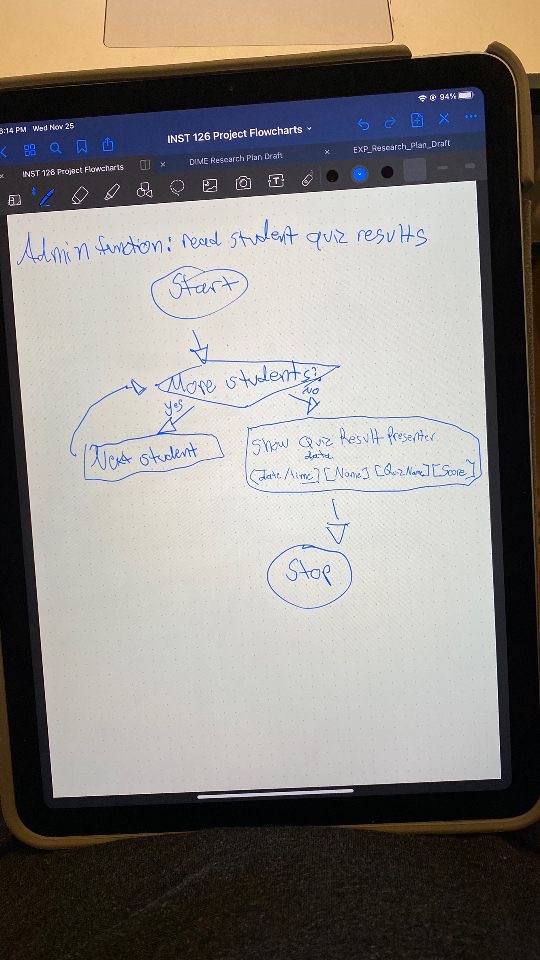 8:14 PM Wed Nov 25
94%
INST 126 Project Flowcharts
INST 126 Project Flowcharts
DIME Research Plan Draft
EXP_Research_Plan_Draft
Admin function: read student quiz results
Start
More students?
yes
No
Next student
Show Quiz Result Presenter
data
[date/time] [Name] [Quiz Name] [Score]
Stop